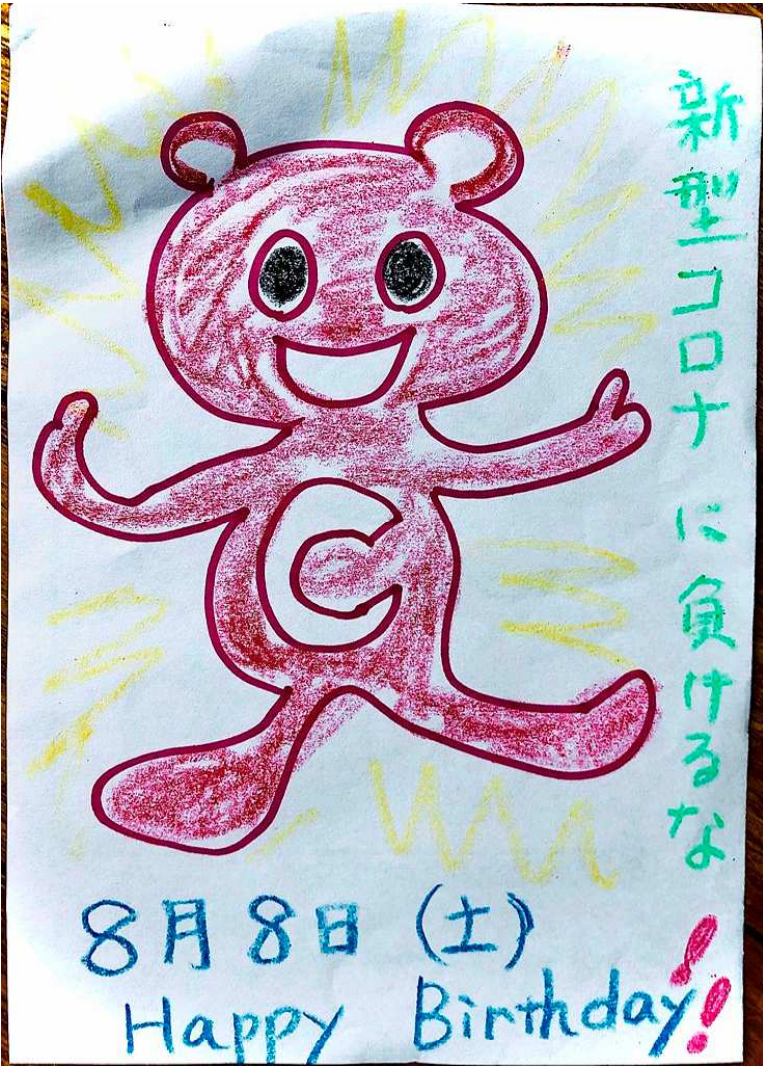 新型コロナに負けるな!
C
8月8日(土)
Happy Birthday!